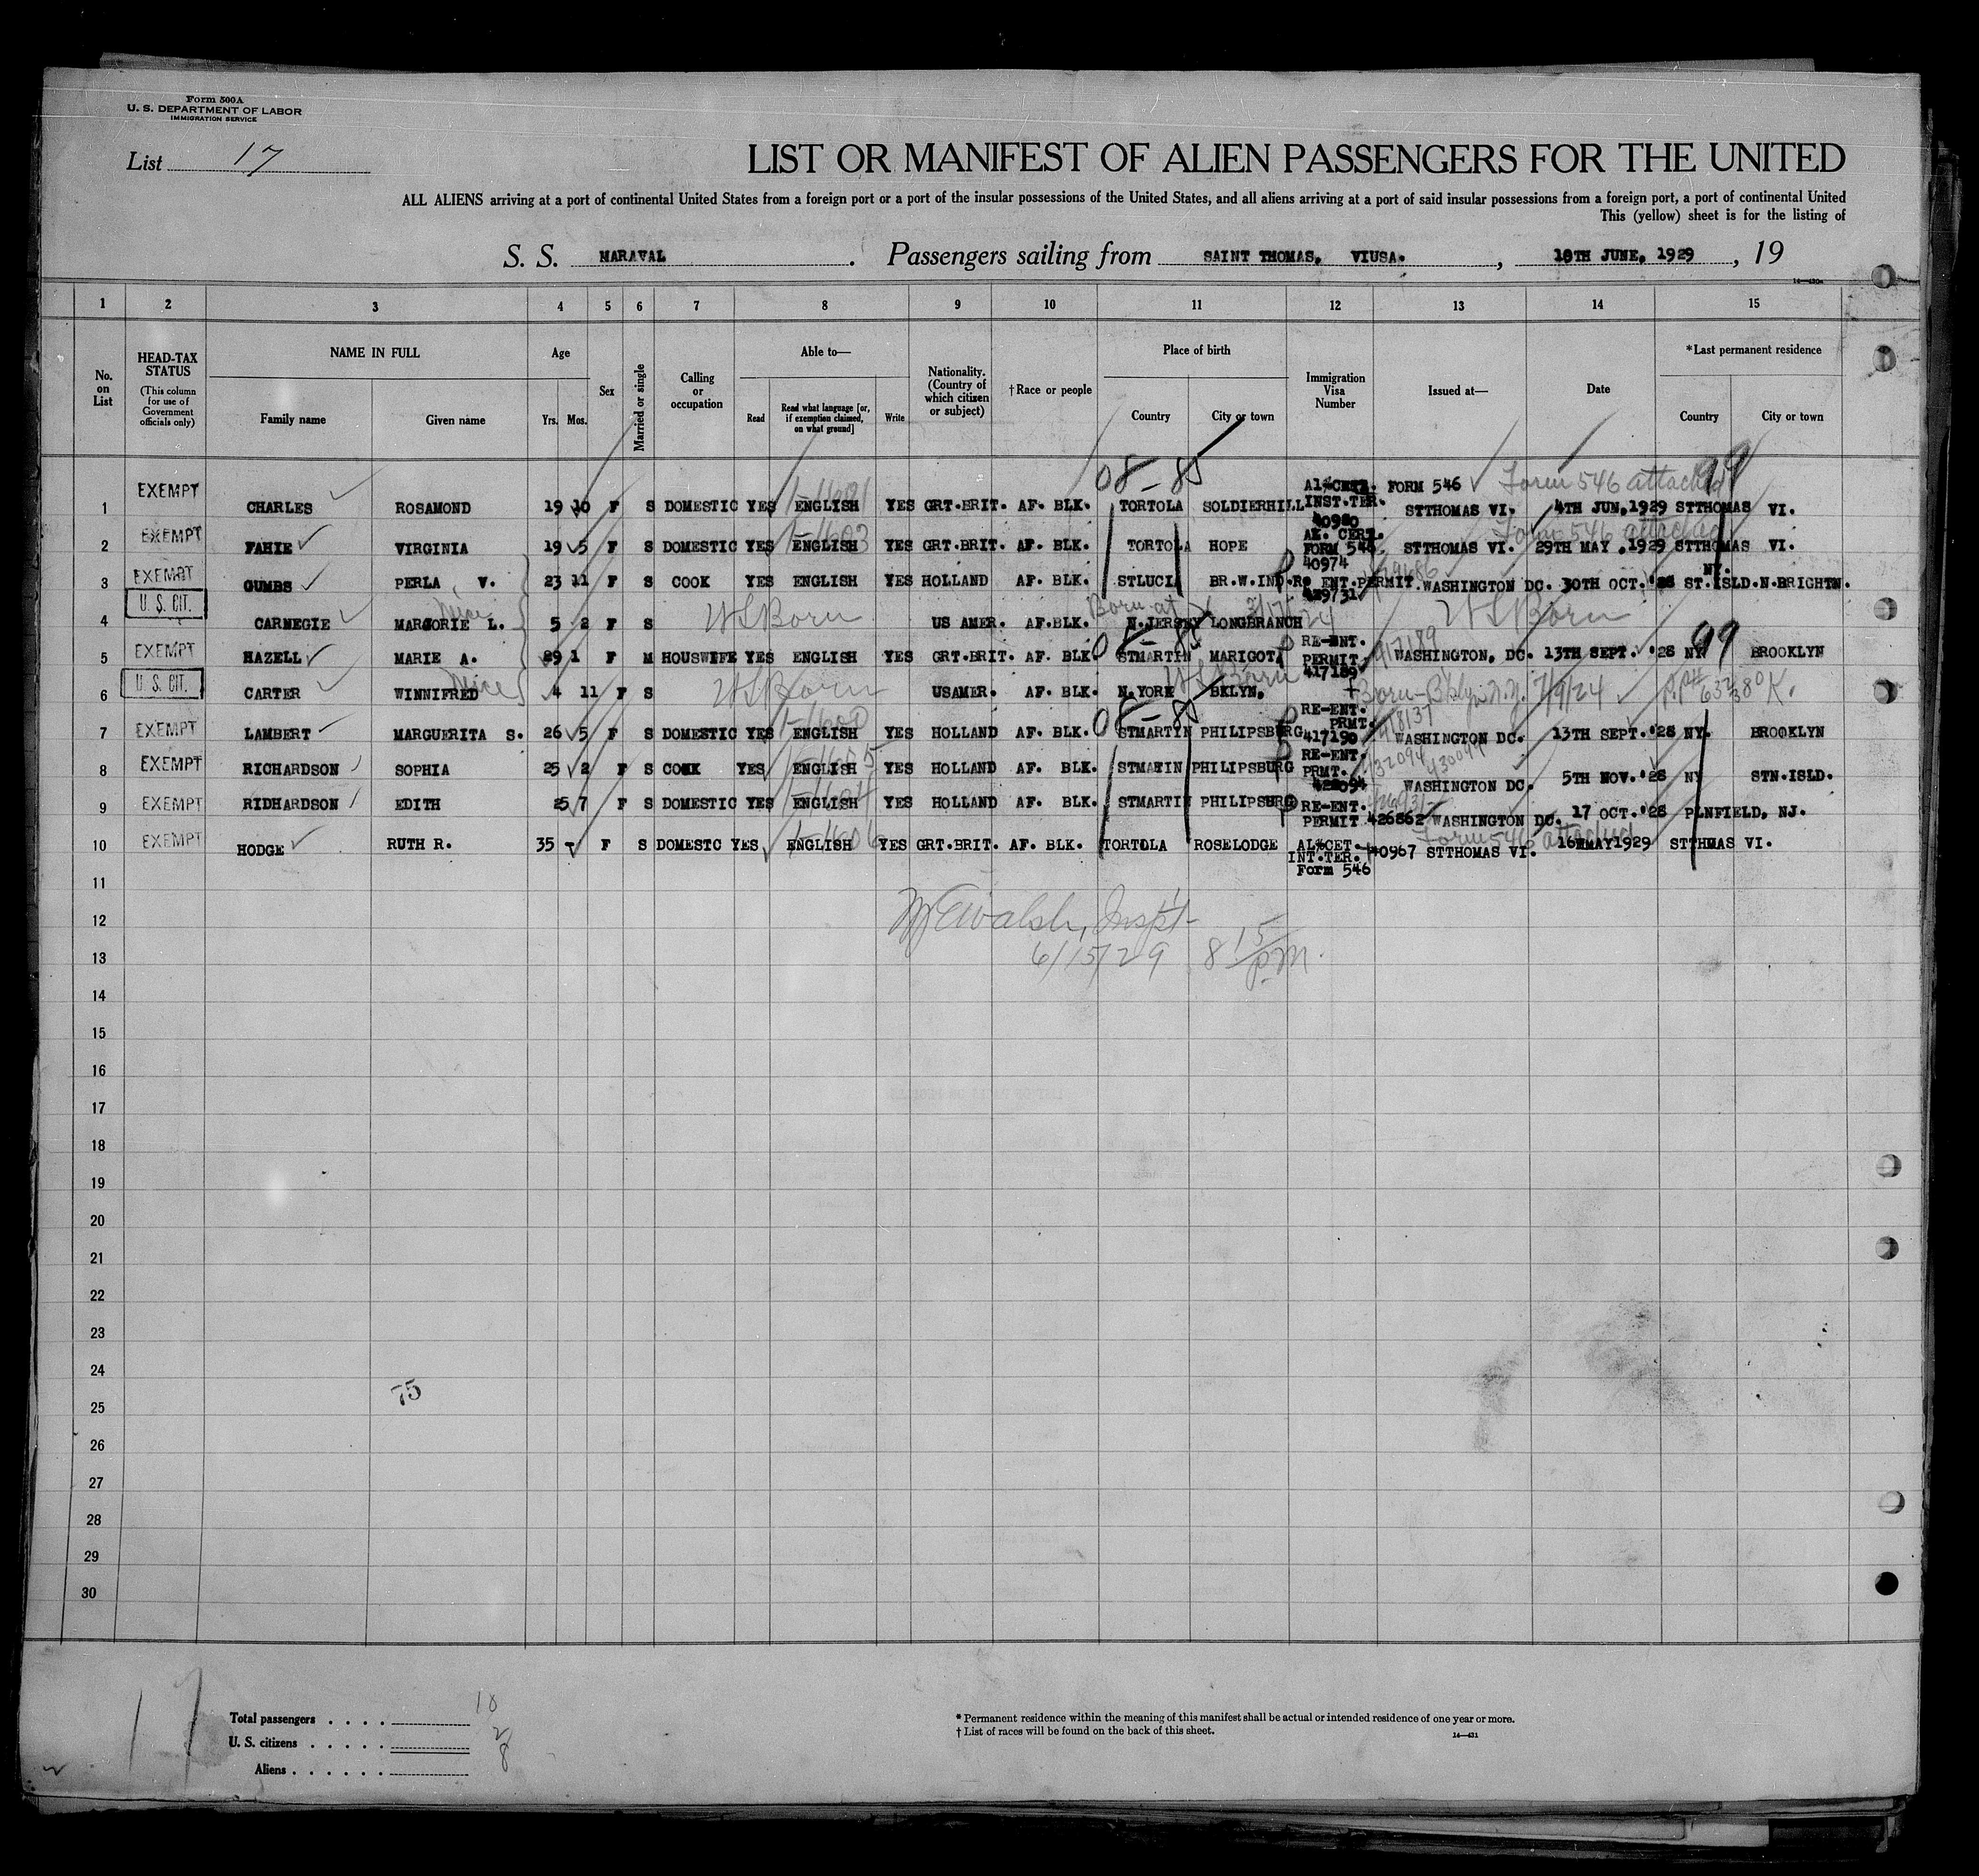 Form 500A
U. S. DEPARTMENT OF LABOR
IMMIGRATION SERVICE
List 17
LIST OR MANIFEST OF ALIEN PASSENGERS FOR THE UNITED
ALL ALIENS arriving at a port of continental United States from a foreign port or a port of the insular possessions of the United States, and all aliens arriving at a port of said insular possessions from a foreign port, a port of continental United
This (yellow) sheet is for the listing of
S. S. MARAVAL . Passengers sailing from SAINT THOMAS, VIUSA. , 10TH JUNE, 1929 , 19
1 2 3 4 5 6 7 8 9 10 11 12 13 14 15
No. on List
HEAD-TAX STATUS (This column for use of Government officials only)
NAME IN FULL Family name Given name
Age Yrs. Mos.
Sex
Married or single
Calling or occupation
Able to— Read Read what language [or, if exemption claimed, on what ground] Write
Nationality. (Country of which citizen or subject)
†Race or people
Place of birth Country City or town
Immigration Visa Number
Issued at—
Date
*Last permanent residence Country City or town
08-85 Form 546 attached 99
1 EXEMPT CHARLES ROSAMOND 19 10 F S DOMESTIC YES ENGLISH YES GRT.BRIT. AF. BLK. TORTOLA SOLDIERHILL INST.TER. 40980 FORM 546 STTHOMAS VI. 4TH JUN,1929 STTHOMAS VI.
Form 546 attached
2 EXEMPT FAHIE VIRGINIA 19 5 F S DOMESTIC YES ENGLISH YES GRT.BRIT. AF. BLK. TORTOLA HOPE AE. CERT. FORM 546. 40974 STTHOMAS VI. 29TH MAY .1929 STTHOMAS VI.
3 EXEMPT GUMBS PERLA V. 23 11 F S COOK YES ENGLISH YES HOLLAND AF. BLK. STLUCIA BR.W.IND. RE ENT.PERMIT 429731 WASHINGTON DC. 30TH OCT. '28 NY. ST.ISLD.N.BRIGHTN.
4 U. S. CIT. CARNEGIE MARJORIE L. Niece 5 2 F S US Born US AMER. AF.BLK. Born at N.JERSEY LONGBRANCH US Born
08-85
5 EXEMPT HAZELL MARIE A. 29 1 F M HOUSWIFE YES ENGLISH YES GRT.BRIT. AF. BLK. STMARTIN MARIGOT RE-ENT. PERMIT. 417189 417189 WASHINGTON, DC. 13TH SEPT. '28 NY BROOKLYN 99
6 U. S. CIT. CARTER WINNIFRED Niece 4 11 F S US Born USAMER. AF. BLK. N.YORK BKLYN. US Born Born-Bklyn N.Y. 7/9/24
08-85
7 EXEMPT LAMBERT MARGUERITA S. 26 5 F S DOMESTIC YES 1-1600 ENGLISH YES HOLLAND AF. BLK. STMARTIN PHILIPSBURG RE-ENT. PRMT. 417190 WASHINGTON DC. 13TH SEPT. '28 NY. BROOKLYN
8 EXEMPT RICHARDSON SOPHIA 25 2 F S COOK YES 1-1605 ENGLISH YES HOLLAND AF. BLK. STMATIN PHILIPSBURG RE-ENT. PRMT. WASHINGTON DC. 5TH NOV. '28 NY STN.ISLD.
9 EXEMPT RIDHARDSON EDITH 25 7 F S DOMESTIC YES 1-1604 ENGLISH YES HOLLAND AF. BLK. STMARTIN PHILIPSBURG RE-ENT. PERMIT 426862 WASHINGTON DC. 17 OCT. '28 PLNFIELD, NJ.
10 EXEMPT HODGE RUTH R. 35 - F S DOMESTC YES 1-1606 ENGLISH YES GRT.BRIT. AF. BLK. TORTOLA ROSELODGE AL%CET. INT.TER. Form 546 40967 STTHOMAS VI. Form 546 attached 16THMAY1929 STTHMAS VI.
11
12 Walsh, Inspt
13 6/15/29 8 15/PM.
14
15
16
17
18
19
20
21
22
23
24
75
25
26
27
28
29
30
17
Total passengers . . . . 10
U. S. citizens . . . . . 2
Aliens . . . . . . 8
* Permanent residence within the meaning of this manifest shall be actual or intended residence of one year or more.
† List of races will be found on the back of this sheet.
14—431